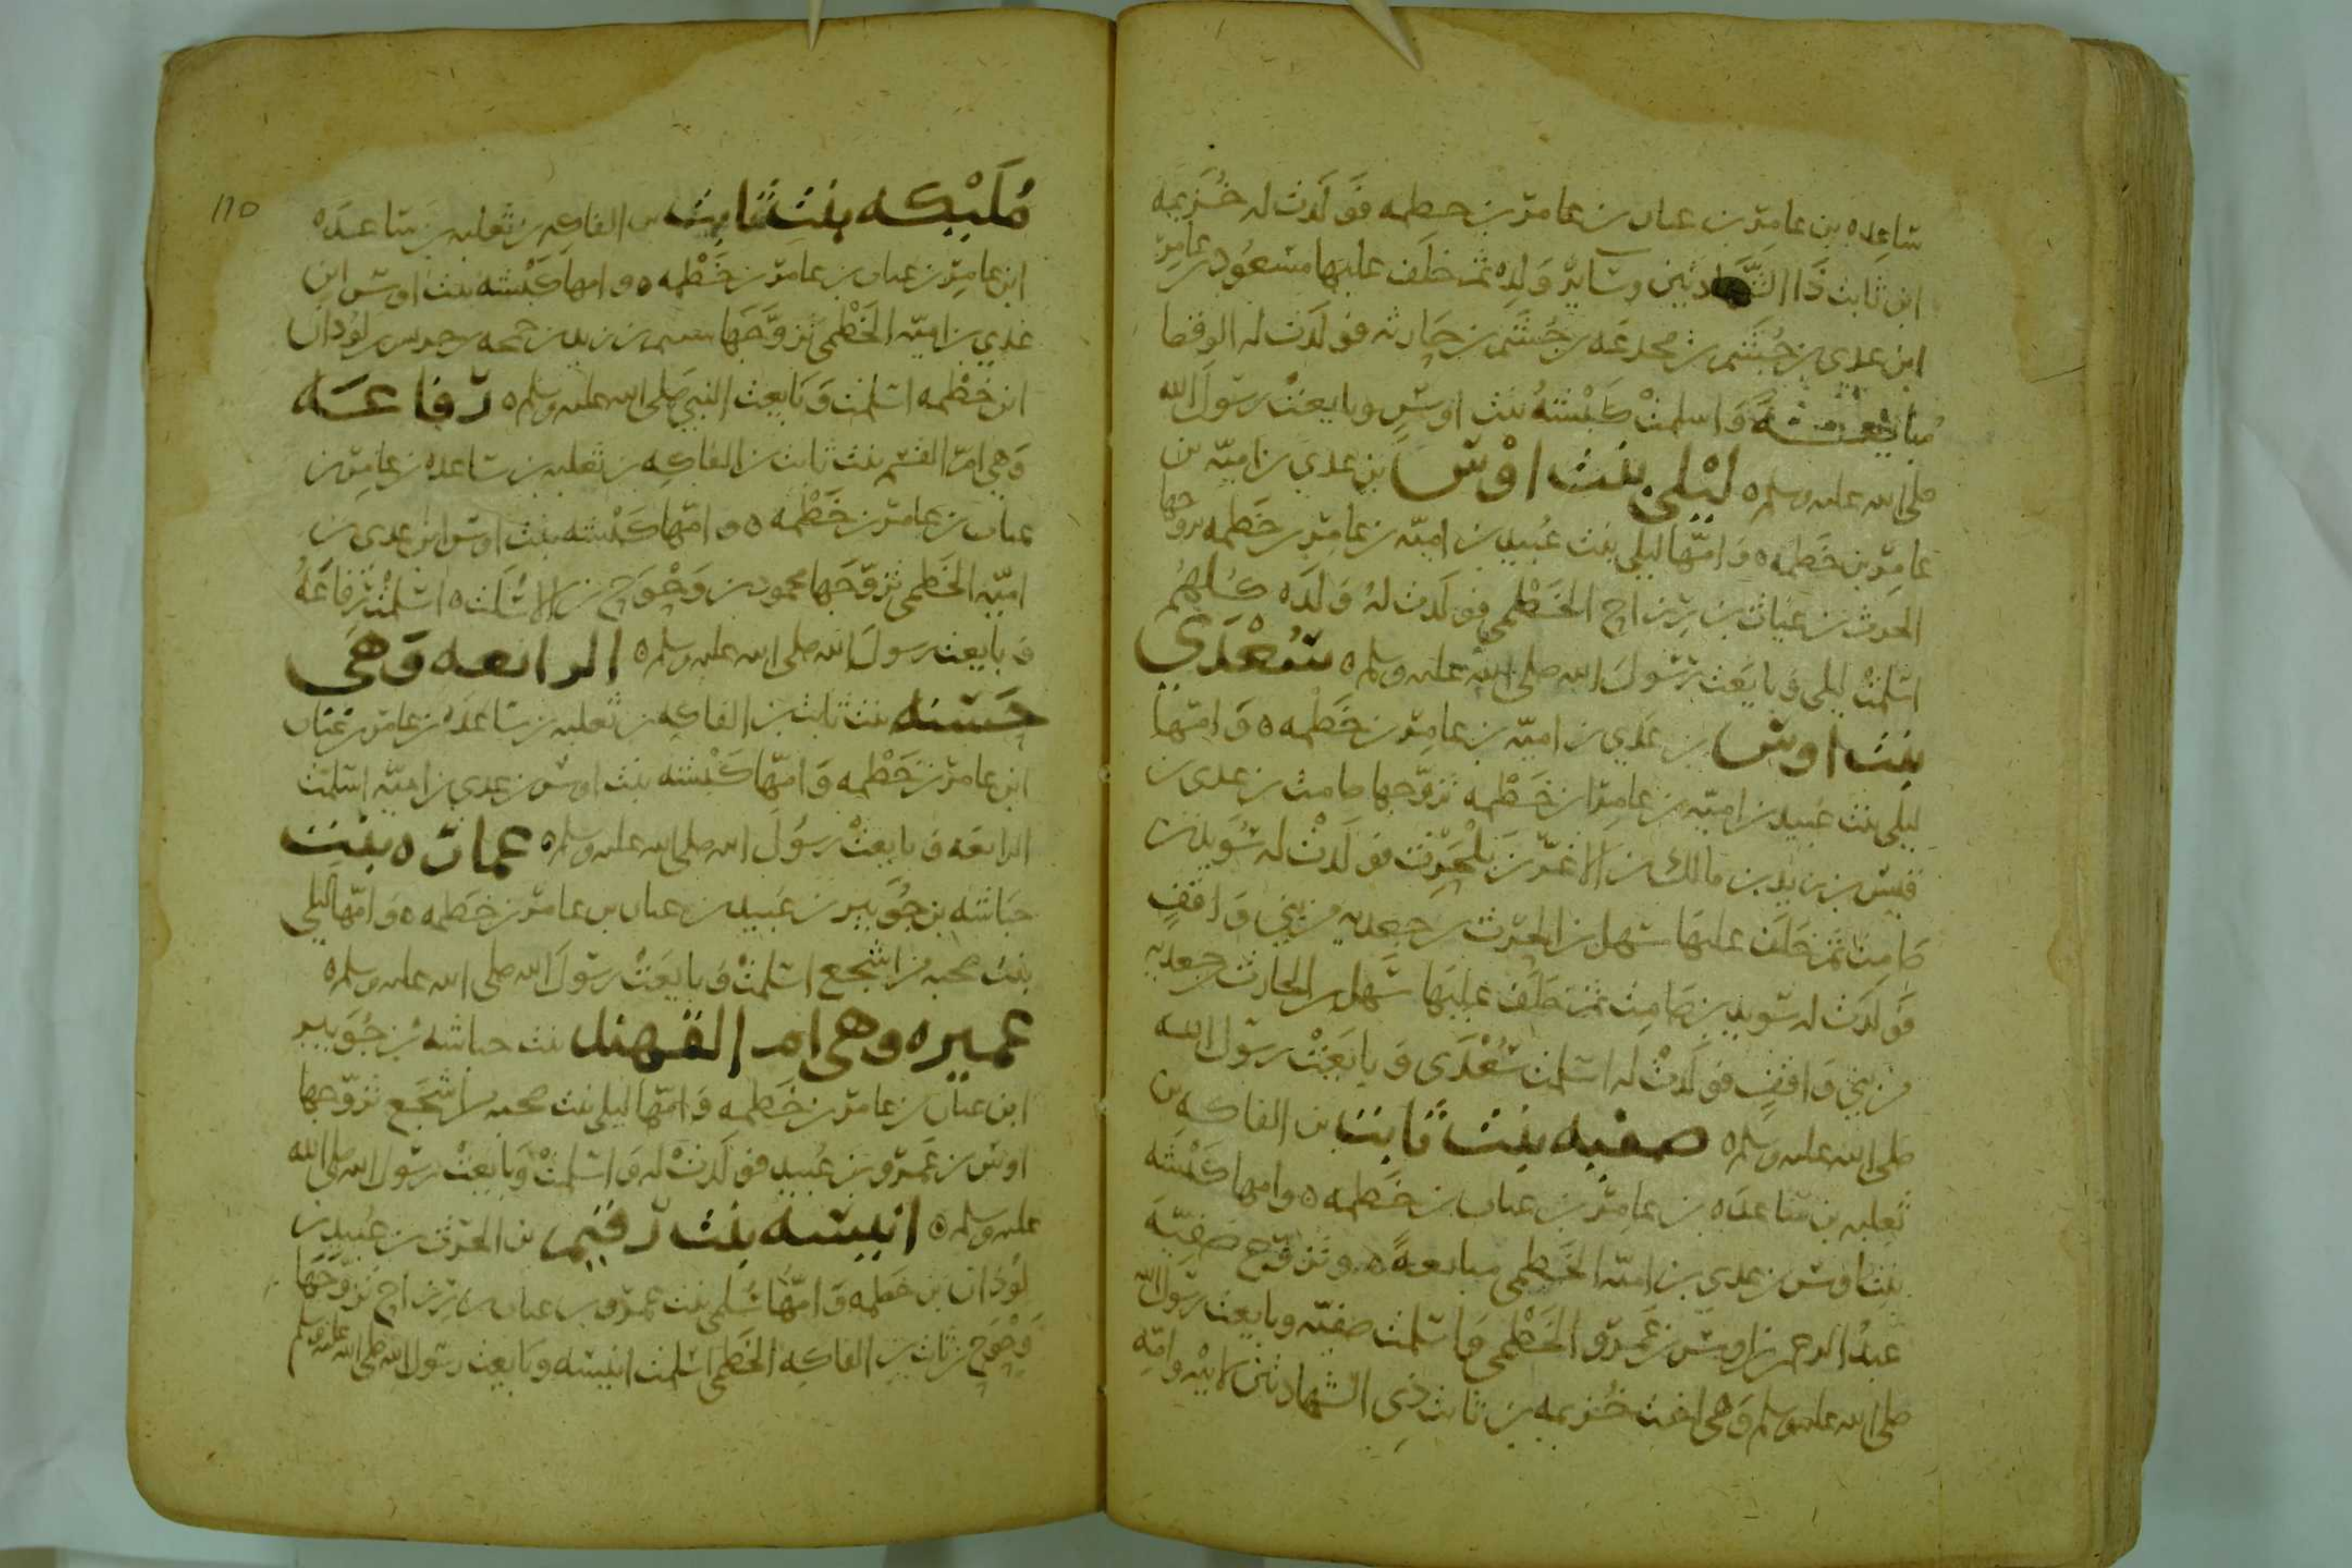 ساعده بن عامر بن عنان بن عامر بن خطمه فولدت له خزيمه
ابن ثابت ذا الشهادتين وسائر ولده ثم خلف عليها مسعود بن عامر
ابن عدي بن جشم بن مجدعه بن جشم بن حارثه فولدت له الوقصا
مبايعه وَاسلمتْ كَبْشَهُ بنت اوسٍ وبايعتْ رسولَ الله
صلى الله عليه وسلم ه لَيْلى بنت اوْس بن عدي بن اميّه بن
عامِر بن خَطمه ه وَامّها ليلى بنت عُبيد بن اميّه بن عامِر بن خَطمه تزوجها
الحرث بن عيّاث بن رزاح الخَطْمي فولدت لهُ وَلدَه كلهم
اسلمتْ ليلى وَبايَعَت رسُولَ الله صلى الله عليه وسلم ه سُعْدَى
بنت اوس بن عَدي بن اميّه بن عامِر بن خَطْمه ه وَامّها
ليلى بنت عبيد بن اميّه بن عامِر بن خَطْمه تزوّجها صامت بن عدي بن
قيس بن زيد بن مالك بن الاغرّ بن بلْحَرِث فولَدتْ له سُوَيد بن
صَامِت ثم خلَف عليهَا سهل بن الحرث بن جعدبه من بني وَاقفٍ
فَولدَت له سويد بن صَامِت ثم خلَف عليهَا سَهل بن الحارث بن جعدبه
من بني وَاقفٍ فولَدتْ له اسلمت سُعْدَى وَبايَعَتْ رسولَ الله
صلى الله عليه وسلم ه صفيه بنت ثابت بن الفاكه بن
ثعلبه بن سَاعدَه بن عامِر بن عنان بن خَطمه ه وامها كَبْشَه
بنت اوس بن عدي بن اميّه الخَطمي مبايعه ه وتزوّج صَفِيّهَ
عبدُ الرحمن بن اوس بن عَمرو الخَطْمي وَاسلمت صفيّه وبايعت رسولَ الله
صلى الله عليه وسلم وَهي اخت خُزيمه بن ثابت ذي الشهادتين لابيْه وامّه
مُلَيْكه بنت ثابت بن الفاكِه بن ثعلبه بن سَاعدَه
ابن عامِر بن عنان بن عامر بن خَطْمه ه وامها كَبْشه بنت اوس ابن
عَدي بن اميّه الخَطْمي تزوَّجَهَا بن زيد بن لوْذان
ابن خَطْمه اسلمت وَبَايعت النبيَ صلى الله عليه وسلم ه رفاعَه
وَهي امّ القسم بنت ثابت بن الفاكِه بن ثعلبه بن سَاعده بن عامِر بن
عنان بن عامر بن خَطْمه ه وامّها كَبْشه بنت اوس ابن عدي بن
اميّه الخَطمي تزوّجَها محمود بن وَحْوَح بن الاسْلَت ه اسلمتْ رفاعَهُ
وَبايعت رسولَ الله صلى الله عليه وسلم ه الرابعه وَهي
حَسَنه بنت ثابت بن الفاكِه بن ثعلبه بن سَاعدَه بن عامر بن عنان
ابن عامر بن خَطْمه وَامّها كَبشه بنت اوس بن عدي بن اميّه اسلمت
الرابعَه وَبايعتْ رسُولَ الله صلى الله عليه وسلم ه عماره بنت
حبَاشه بن جُوَيبر بن عَبيد بن عنان بن عامر بن خَطمه ه وَامّها ليلى
بنت من اشجع اسلمتْ وَبايَعَتْ رسولَ الله صلى الله عليه وسلم ه
عميره وهي ام القهند بنت حباشه بن جُوَيبر
ابن عنان بن عامر بن خَطمه وَامّها ليلى بنت من اشجَع تزوّجها
اوس بن عَمرو بن عُبيد فولَدتْ له وَاسلمتْ وَبَايعتْ رسولَ الله صلى الله
عليه وسلم ه انيسه بنت رقيم بن الحرث بن عُبيد بن
لَوْذان بن خَطمه وَامّها سُلمى بنت عمرو بن عنان بن رزاح تزوّجَها
وَحْوَح بن ثابت بن الفاكِه الخَطمي اسلمت انيسَه وبَايعت رسولَ الله صلى الله عليه وسلم